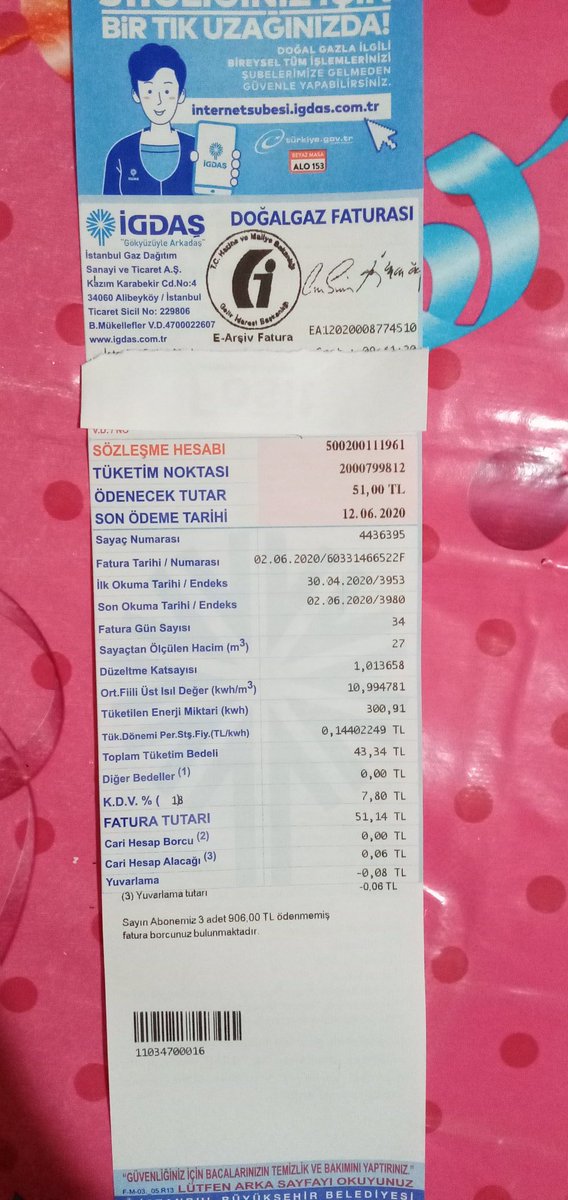 BİR TIK UZAĞINIZDA!
DOĞAL GAZLA İLGİLİ
BİREYSEL TÜM İŞLEMLERİNİZİ
ŞUBELERİMİZE GELMEDEN
GÜVENLE YAPABİLİRSİNİZ.
internetsubesi.igdas.com.tr
türkiye.gov.tr
BEYAZ MASA
ALO 153
İGDAŞ
İGDAŞ
"Gökyüzüyle Arkadaş"
DOĞALGAZ FATURASI
İstanbul Gaz Dağıtım
Sanayi ve Ticaret A.Ş.
Kazım Karabekir Cd.No:4
34060 Alibeyköy / İstanbul
Ticaret Sicil No: 229806
B.Mükellefler V.D.4700022607
www.igdas.com.tr
T.C. Hazine ve Maliye Bakanlığı
Gelir İdaresi Başkanlığı
E-Arşiv Fatura
EA12020008774510
V.D. / NO
SÖZLEŞME HESABI 500200111961
TÜKETİM NOKTASI 2000799812
ÖDENECEK TUTAR 51,00 TL
SON ÖDEME TARİHİ 12.06.2020
Sayaç Numarası 4436395
Fatura Tarihi / Numarası 02.06.2020/60331466522F
İlk Okuma Tarihi / Endeks 30.04.2020/3953
Son Okuma Tarihi / Endeks 02.06.2020/3980
Fatura Gün Sayısı 34
Sayaçtan Ölçülen Hacim (m³) 27
Düzeltme Katsayısı 1,013658
Ort.Fiili Üst Isıl Değer (kwh/m³) 10,994781
Tüketilen Enerji Miktari (kwh) 300,91
Tük.Dönemi Per.Stş.Fiy.(TL/kwh) 0,14402249 TL
Toplam Tüketim Bedeli 43,34 TL
Diğer Bedeller (1) 0,00 TL
K.D.V. % ( 18 7,80 TL
FATURA TUTARI 51,14 TL
Cari Hesap Borcu (2) 0,00 TL
Cari Hesap Alacağı (3) 0,06 TL
Yuvarlama -0,08 TL
(3) Yuvarlama tutarı -0,06 TL
Sayın Abonemiz 3 adet 906,00 TL ödenmemiş
fatura borcunuz bulunmaktadır.
11034700016
"GÜVENLİĞİNİZ İÇİN BACALARINIZIN TEMİZLİK VE BAKIMINI YAPTIRINIZ."
F-M-03. 05.R13 LÜTFEN ARKA SAYFAYI OKUYUNUZ
İSTANBUL BÜYÜKŞEHİR BELEDİYESİ